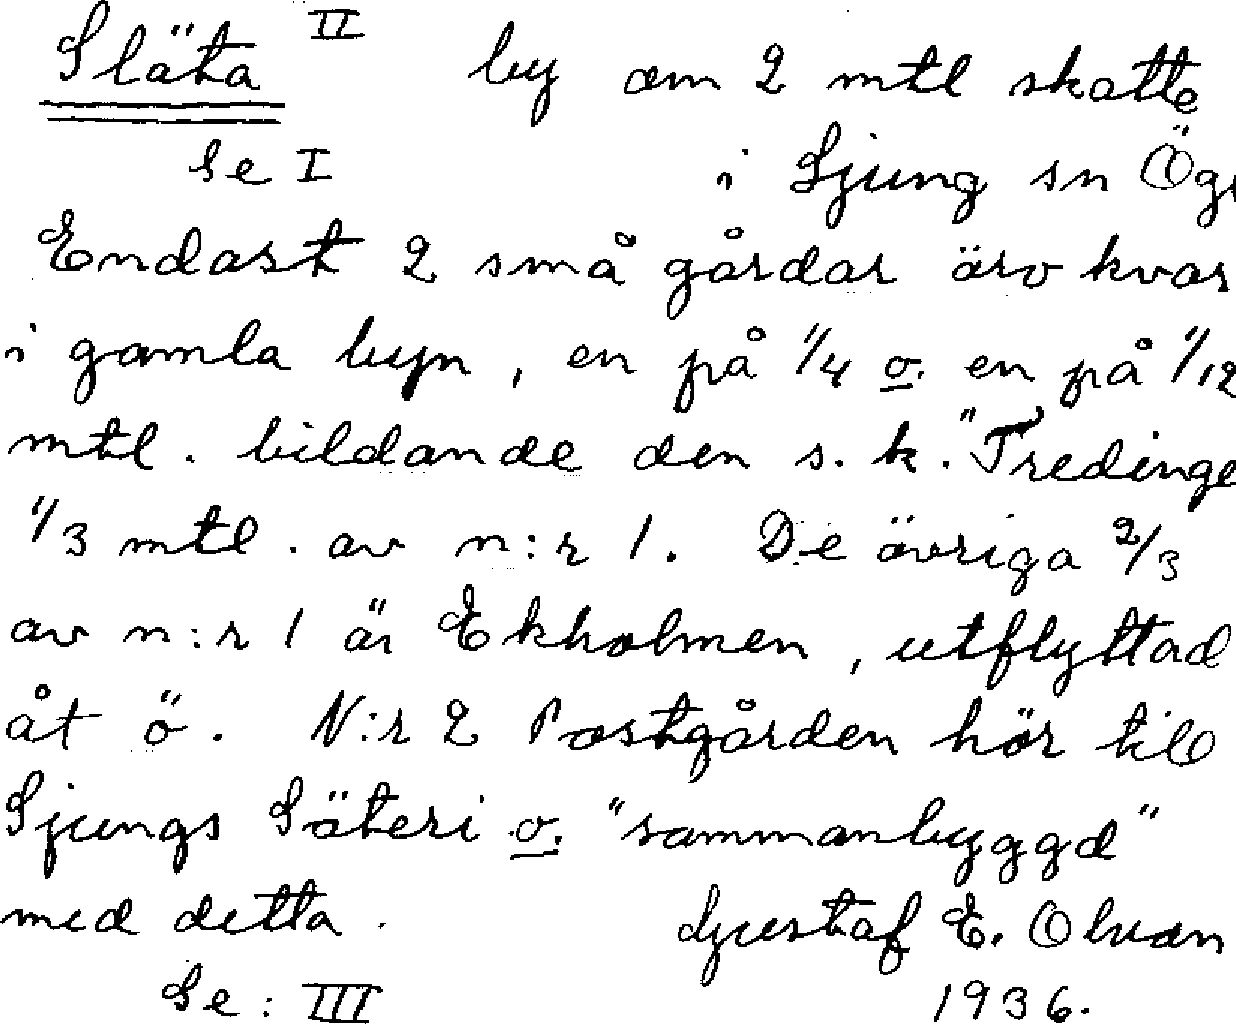 Släta II by om 2 mtl skatte
Se I i Ljung sn Ögl
Endast 2 små gårdar äro kvar
i gamla byn, en på 1/4 o. en på 1/12
mtl. bildande den s. k. "Tredinge
1/3 mtl. av n:r 1. De övriga 2/3
av n:r 1 är Ekholmen, utflyttad
åt ö. N:r 2 Postgården hör till
Ljungs Säteri o. "sammanbyggd"
med detta. Gustaf E.
Se: III 1936.